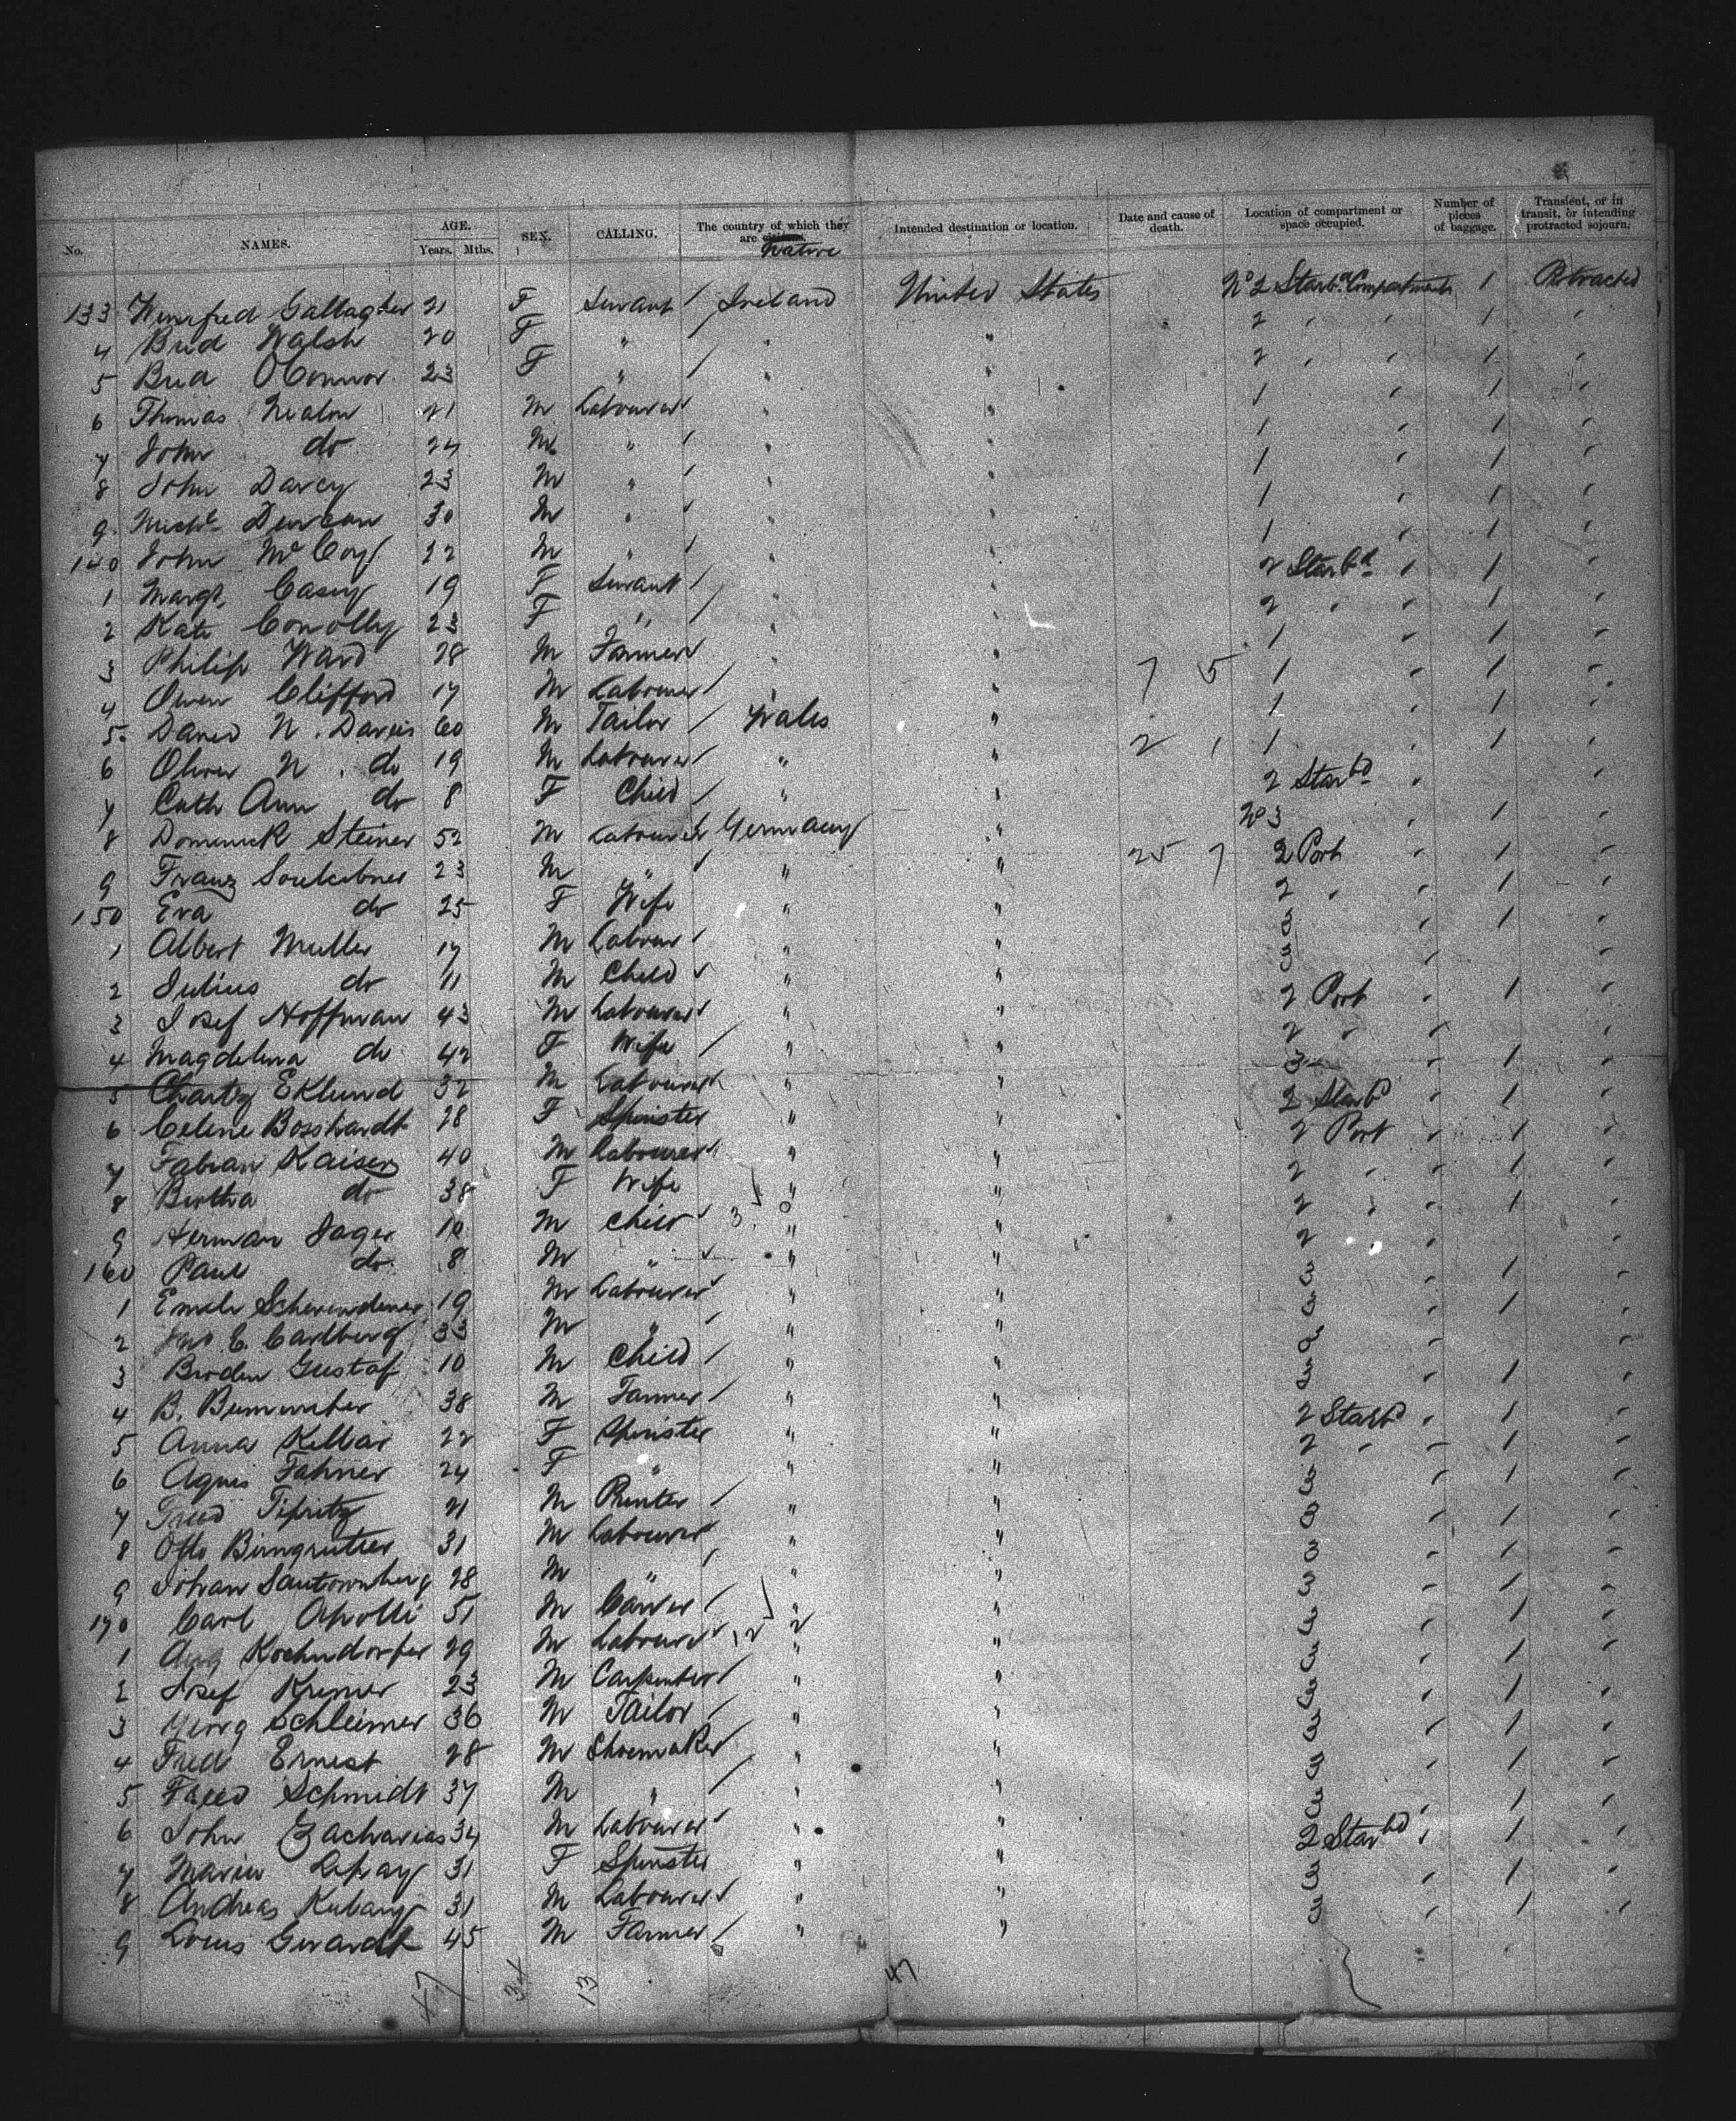 No. NAMES. AGE. Years. Mths. SEX. CALLING. The country of which they are Native Intended destination or location. Date and cause of death. Location of compartment or space occupied. Number of pieces of baggage. Transient, or in transit, or intending protracted sojourn.
133 Winifred Gallagher 21 F Servant / Ireland United States No 2 Starbd Compartment 1 Protracted
4 Brid Walsh 20 F " / " " 2 " " 1 "
5 Brid O'Connor 23 F " / " " 2 " " 1 "
6 Thomas Nealon 21 M Labourer " " 1 " 1 "
7 John do 24 M " / " " 1 " 1 "
8 John Darcy 23 M " / " " 1 " 1 "
9 Michl Duncan 30 M " / " " 1 " 1 "
140 John McCoy 22 M " / " " 1 " 1 "
1 Margt. Casey 19 F Servant / " " 2 Starbd " 1 "
2 Kate Conolly 23 F " / " " 2 " " 1 "
3 Philip Ward 28 M Farmer " " 1 " 1 "
4 Owen Clifford 17 M Labourer / " " 7 5 1 " 1 "
5 David N. Davis 60 M Tailor / Wales " 1 " 1 "
6 Oliver N. do 19 M Labourer / " " 2 1 1 " 1 "
7 Cath Ann do 8 F Child / " " 2 Starbd " "
8 Domenick Steiner 52 M Labourer Germany " No 3 " 1 "
9 Franz 23 M " / " " 25 7 2 Port " 1 "
150 Eva do 25 F Wife " " 2 " " 1 "
1 Albert Muller 17 M Labour / " " 3 " 1 "
2 Julius do 11 M Child / " " 3 " "
3 Josef Hoffman 43 M Labourer " " 2 Port " 1 "
4 Magdelena do 42 F Wife / " " 2 " " "
5 Eklund 32 M Labourer " " 3 " 1 "
6 Celine Bosshardt 28 F Spinster " " 2 Starbd " 1 "
7 Fabian Kaiser 40 M Labourer " " 2 Port " 1 "
8 Bertha do 38 F Wife " " 2 " " 1 "
9 Herman Jager 10 M Child / 3 0 " " 2 " " 1 "
160 Paul do 8 M " / " " 2 " " "
1 Emile Schwendener 19 M Labourer " " 3 " 1 "
2 Jno C. Carlberg 33 M " / " " 3 " 1 "
3 Broden Gustaf 10 M Child / " " 3 " "
4 B. 38 M Farmer / " " 3 " 1 "
5 Anna 22 F Spinster " " 2 Starbd " 1 "
6 Agnes Fahner 24 F " " " 2 " " 1 "
7 Fred 21 M Printer / " " 3 " 1 "
8 Otto 31 M Labourer " " 3 " 1 "
9 Johan 28 M " / " " 3 " 1 "
170 Carl Apolli 51 M / " " 3 " 1 "
1 Aug Kochendorfer 29 M Labourer 12 2 " " 3 " 1 "
2 Josef Kremer 23 M Carpenter / " " 3 " 1 "
3 Georg Schleimer 36 M Tailor / " " 3 " 1 "
4 Fred Ernest 28 M Shoemaker " " 3 " 1 "
5 Fred Schmidt 37 M " / " " 3 " 1 "
6 John Zacharias 34 M Labourer " " 3 " 1 "
7 Marie Lepay 31 F Spinster " " 2 Starbd " 1 "
8 Andreas Kubany 31 M Labourer " " 3 " 1 "
9 Louis Gerardt 45 M Farmer / " " 3 " 1 "
47 34 13 47